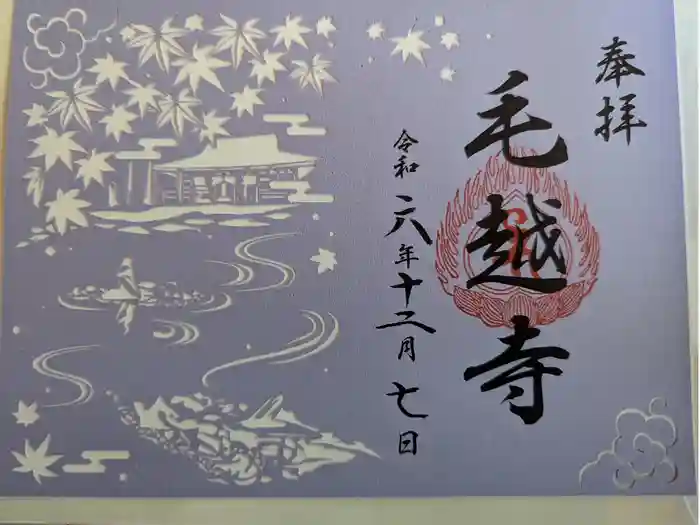 奉拝
毛越寺
令和六年十二月七日